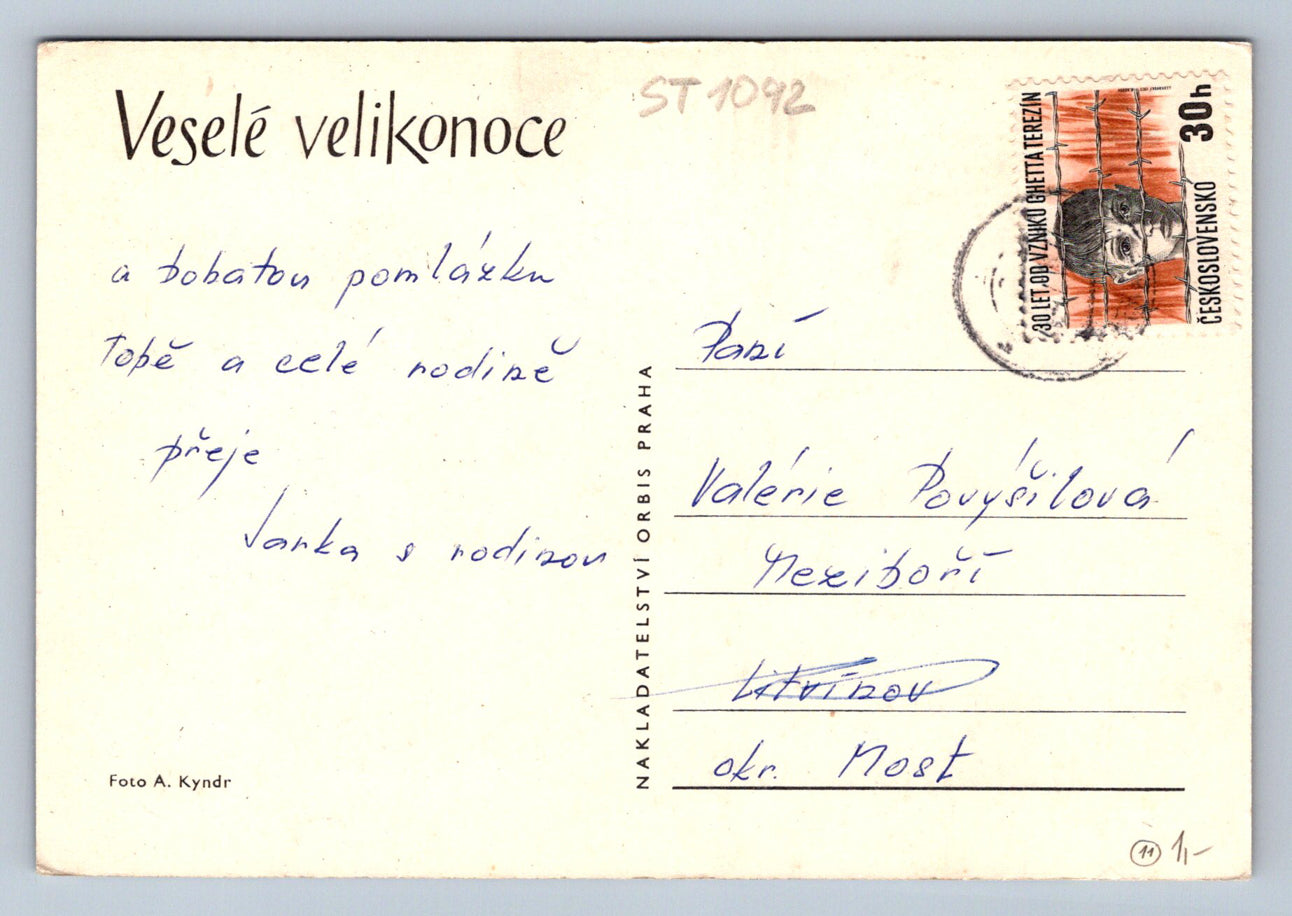 Veselé velikonoce
ST 1092
30 LET OD VZNIKU GHETTA TEREZÍN
30h
ČESKOSLOVENSKO
a bohatou pomlázku
Tobě a celé rodině
přeje
Janka s rodinou
Foto A. Kyndr
NAKLADATELSTVÍ ORBIS PRAHA
Paní
Valérie Povýšilová
Meziboří
Litvínov
okr. Most
11 1,-